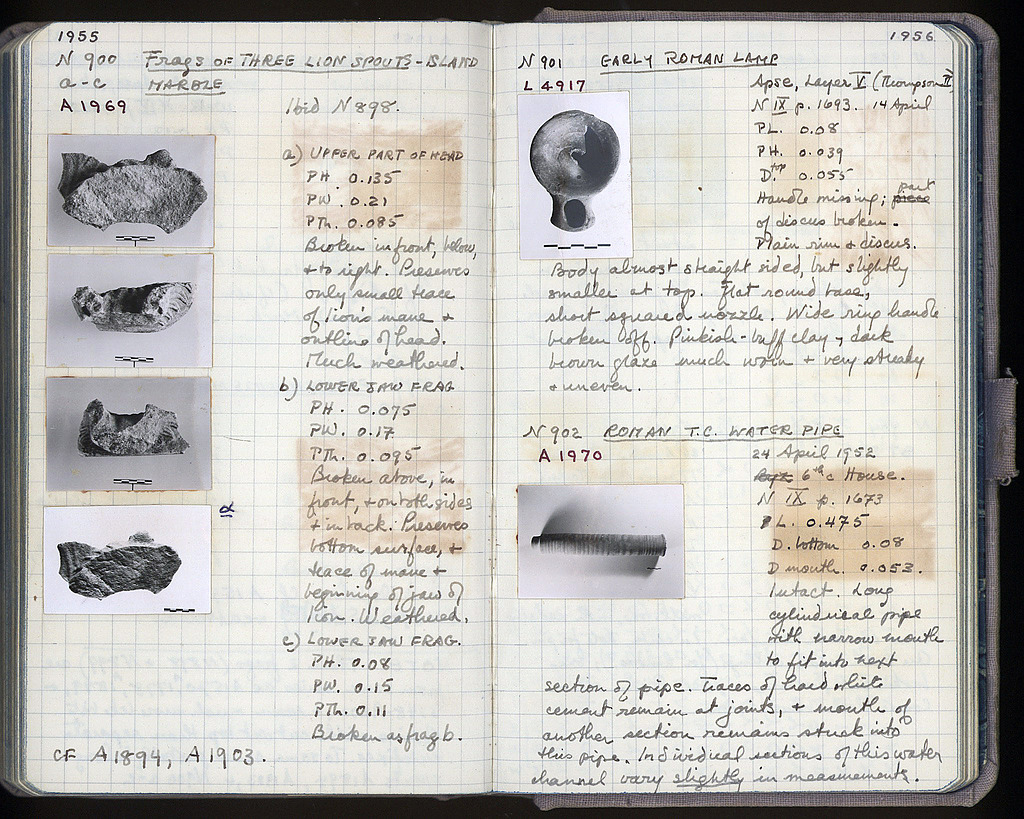 1955
N 900 Frags OF THREE LION SPOUTS - ISLAND
a-c MARBLE
A 1969
Ibid N 898.
a) UPPER PART OF HEAD
PH. 0.135
PW. 0.21
PTh. 0.085
Broken in front, below,
+ to right. Preserves
only small trace
of lion's mane +
outline of head.
Much weathered.
b) LOWER JAW FRAG
PH. 0.075
PW. 0.17
PTh. 0.095
Broken above, in
front, + on both sides
+ in back. Preserves
bottom surface, +
trace of mane +
beginning of jaw of
lion. Weathered.
c) LOWER JAW FRAG.
PH. 0.08
PW. 0.15
PTh. 0.11
Broken as frag b.
α
CF A 1894, A 1903.
1956
N 901 EARLY ROMAN LAMP
L 4917
Apse, Layer V (Thompson II)
N IX p. 1693. 14 April
PL. 0.08
PH. 0.039
D. top 0.055
Handle missing; piece part
of discus broken.
Plain rim & discus.
Body almost straight sided, but slightly
smaller at top. Flat round base,
short squared nozzle. Wide ring handle
broken off. Pinkish-buff clay, dark
brown glaze much worn + very streaky
+ uneven.
N 902 ROMAN T.C. WATER PIPE
A 1970
24 April 1952
Byz. 6th c House.
N IX p. 1673
L. 0.475
D. bottom 0.08
D mouth. 0.053.
Intact. Long
cylindrical pipe
with narrow mouth
to fit into next
section of pipe. Traces of hard white
cement remain at joints, + mouth of
another section remains stuck into
this pipe. Individual sections of this water
channel vary slightly in measurements.